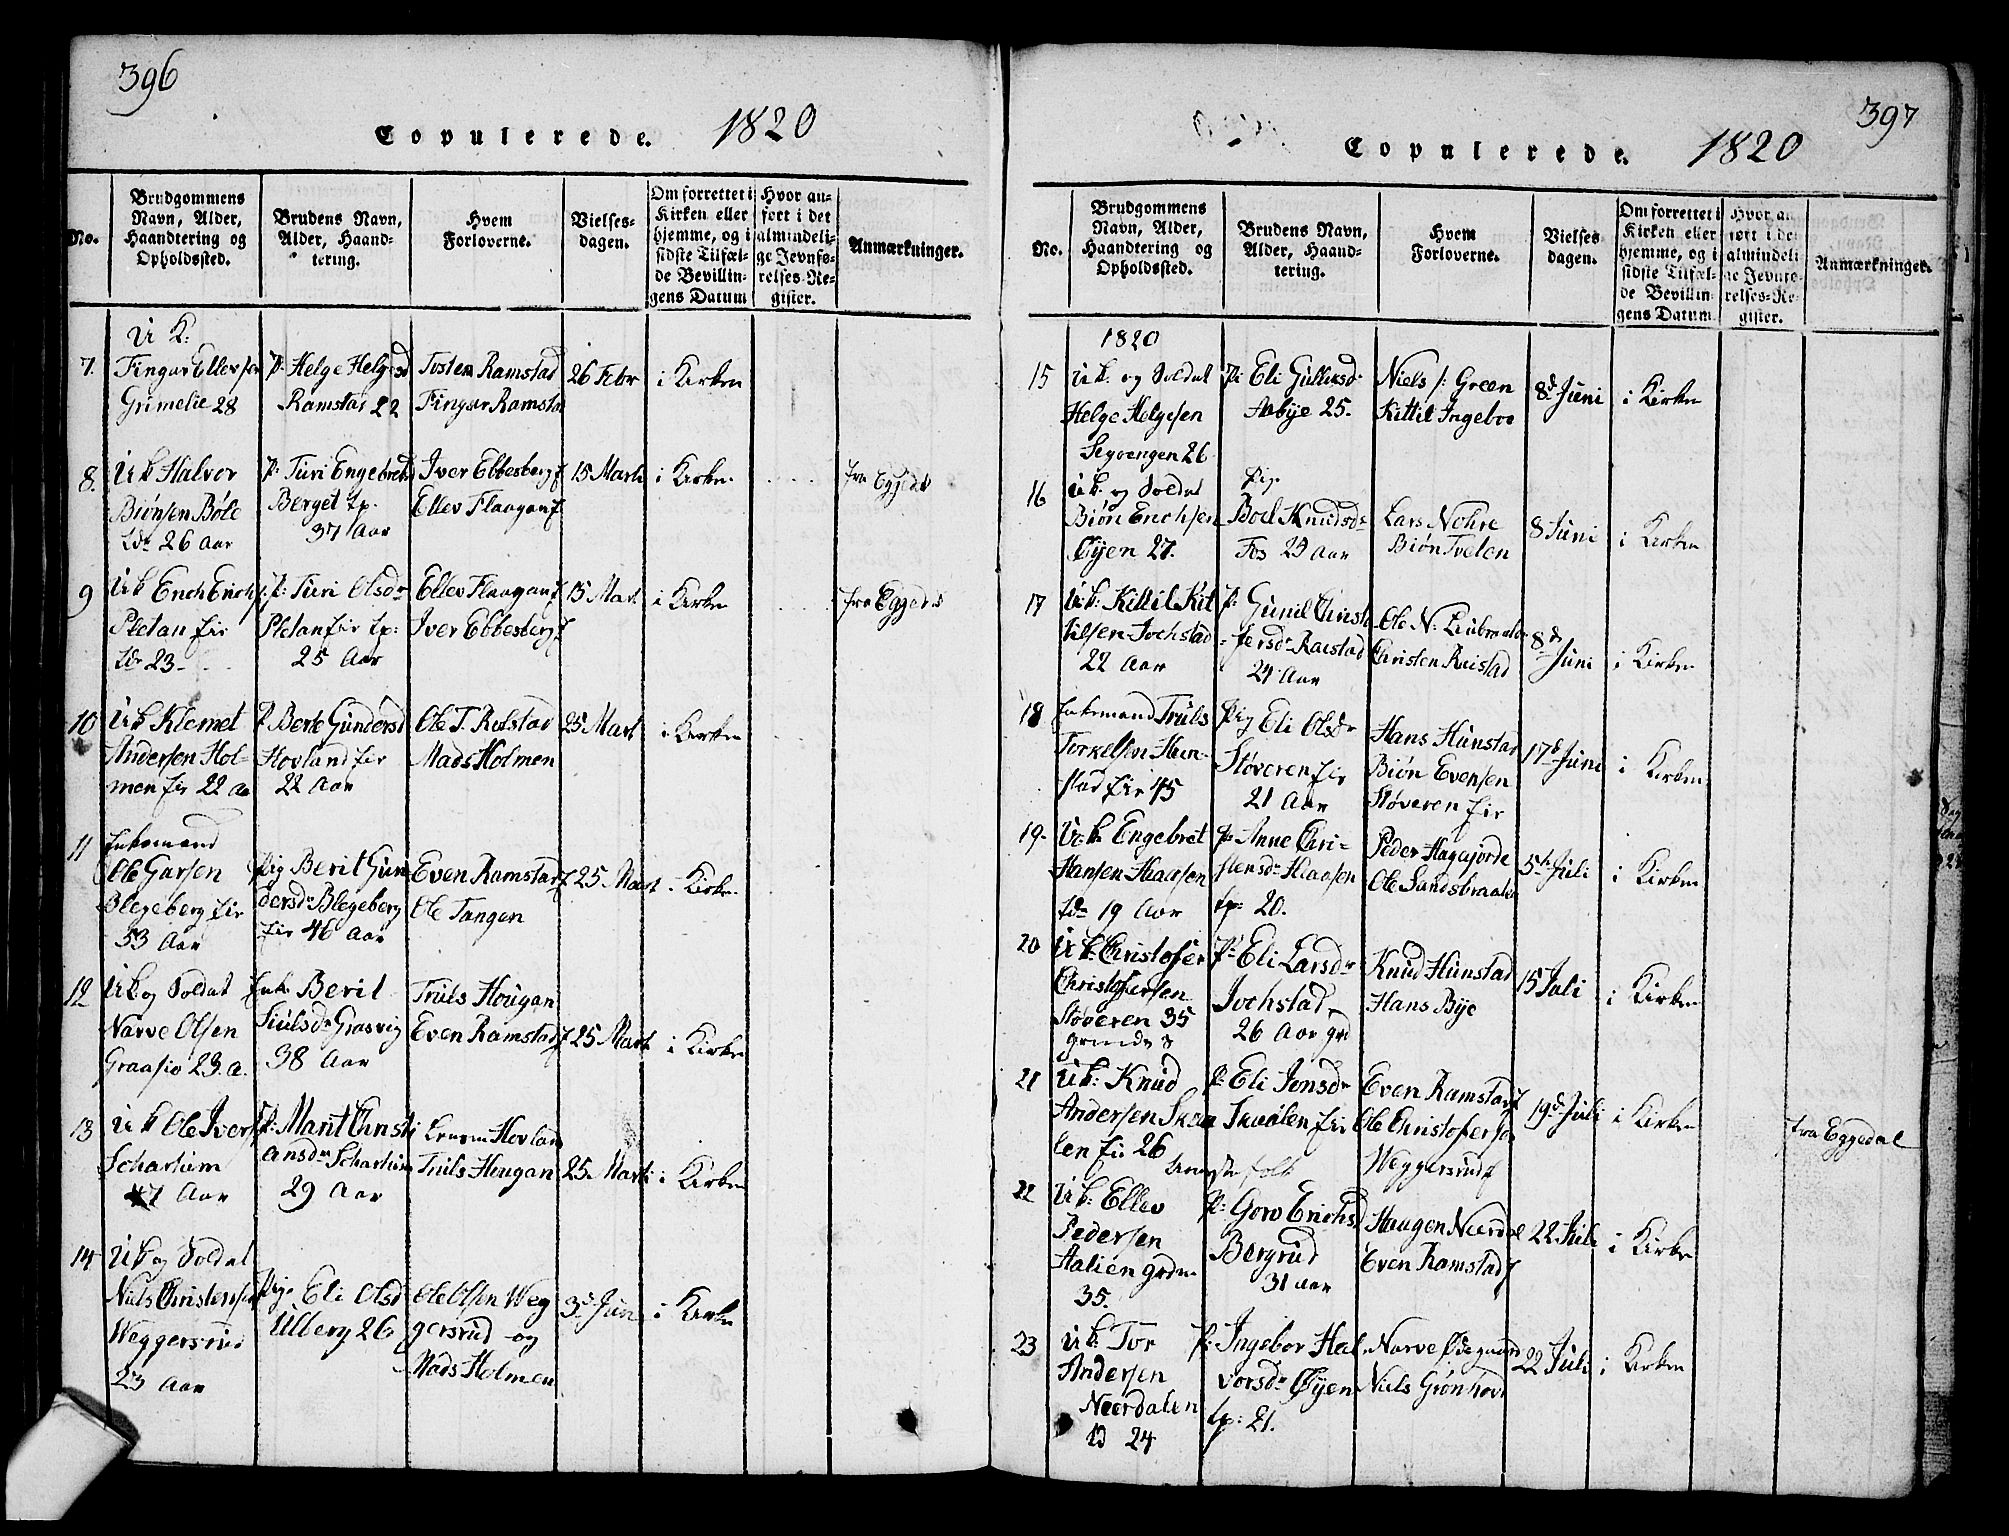 396
Copulerede. 1820
No.
Brudgommens
Navn, Alder,
Haandtering og
Opholdssted.
Brudens Navn,
Alder, Haand-
tering.
Hvem
Forloverne.
Vielses-
dagen.
Om forrettet i
Kirken eller
hjemme, og i
sidste Tilfæl-
de Bevillin-
gens Datum
Hvor an-
ført i det
almindeli-
ge Jevnfø-
relses-Re-
gister.
Anmærkninger.
7.
U K:
Fingar Ellevsen
Grimelie 28
P: Helge Helgesd
Ramstad 22
Tosten Ramstad
Fingar Ramstad
26 Febr
i Kirken
8.
U k Halvor
Biönsen Böle
26 Aar
P: Turi Engebretsd
Berget tp.
37 Aar
Iver Ebbesberg
Ellev Flaagan
15 Marti
i Kirken
fra Eggedal
9
U k Erich Erichs
Pletan fir
23
P: Turi Olsdr
Pletan fir tp:
25 Aar
Ellev Flaagan
Iver Ebbesberg
15 Mart
i Kirken
fra Eggedal
10
U k Klemet
Andersen Hol-
men fir 22 a
P Berte Gundersd
Hovland fir
22 Aar
Ole T. Rolstad
Mads Holmen
25 Mart
i Kirken
11
Enkemand
Ole Garsen
Blegeberg fir
53 Aar
Pig Berit Gun
dersdr Blegeberg
fir 46 Aar
Even Ramstad
Ole Tangen
25 Mart
i Kirken
12
U k og Soldat
Narve Olsen
Graasio 23. a.
Enk. Berit
Grasvig
38 Aar
Truls Hougan
Even Ramstad
25 Mart
i Kirken
13
U k Ole Ivers
Scharium
Aar
P: Marit Christi
ansdr Scharium
29 Aar
Hovland
Truls Hougan
25 Marti
i Kirken
14
U k og Soldat
Niels Christensen
Weggersrud
23 Aar
Pig. Eli Olsd
Ulberg 26
Ole Olsen Weg
gersrud og
Mads Holmen
3d Jun
i Kirken
397
Copulerede. 1820
No.
Brudgommens
Navn, Alder,
Haandtering og
Opholdssted.
Brudens Navn,
Alder, Haand-
tering.
Hvem
Forloverne.
Vielses
dagen.
Om forrettet i
Kirken eller
hjemme, og i
sidste Tilfæl-
de Bevillin-
gens Datum.
Hvor an
ført i det
almindeli
ge Jevnfø-
relses-Re-
gister.
Anmærkninger.
1820
15
U k. og Soldat
Helge Helgesen
26
P: Eli Gulliksdr
Aabye 25.
Niels Green
Kittil Ingeboe
8d Juni
i Kirken
16
U k. og Soldat
Biön Erichsen
Öyen 27.
Pig.
Boel Knudsdr
Fos 23 Aar
Lars Nohre
Biön Tvelen
8 Juni
i Kirken
17
U k: Kittil Kit
tilsen Jochstad
22 Aar
P: Gunil Christ
fersdr Raestad
24 Aar
Ole N:
Christen Reistad
8d Juni
i Kirken
18
Enkemand Truls
Torkelsen Hun-
stad fir 45
Pig Eli Olsdr
Stöveren fir
21 Aar
Hans Hunstad
Biön Evensen
Stöveren fir
17d Juni
i Kirken
19.
U k. Engebret
Hansen Haasen
19 Aar
P: Anne Chri-
stensdr Haasen
tp: 20.
Peder Hagajorde
Ole Sandsbraaten
5te Juli
i Kirken
20
U k: Christofer
Christofersen
Stöveren 35
P: Eli Larsdr
Jochstad
26 Aar
Knud Hunstad
Hans Bye
15 Juli
i Kirken
21
U k: Knud
Andersen Skaa
len fir 26
P: Eli Jonsdr
Skaalen fir
Even Ramstad
Ole Christofersen
Weggersrud
19de Juli
i Kirken
fra Eggedal
22
U k: Ellev
Pedersen
Aalien grdm
35.
P: Goro Erichsd
Bergrud
31 Aar
Haagen Neerdal
Even Ramstad
22 Juli
i Kirken
23
U k: Tor
Andersen
Neerdalen
24
P: Ingebor Hal
vorsdr Öyen
tp: 21.
Narve Ödegaard
Niels Grönhovd
22 Juli
i Kirken